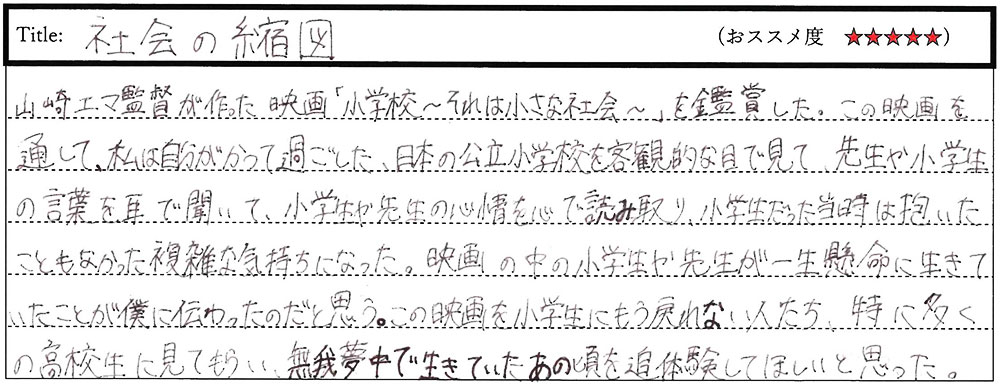 Title: 社会の縮図 (おススメ度 ★★★★★)
山崎エマ監督が作った映画「小学校～それは小さな社会～」を鑑賞した。この映画を
通して、私は自分がかつて過ごした、日本の公立小学校を客観的な目で見て、先生や小学生
の言葉を耳で聞いて、小学生や先生の心情を心で読み取り、小学生だった当時は抱いた
こともなかった複雑な気持ちになった。映画の中の小学生や先生が一生懸命に生きて
いたことが僕に伝わったのだと思う。この映画を小学生にもう戻れない人たち、特に多く
の高校生に見てもらい、無我夢中で生きていたあの頃を追体験してほしいと思った。